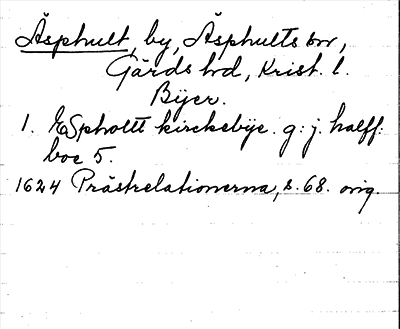 Äsphult, by, Äsphults sn,
Gärds hd, Krist. l.
Byer.
1. Espholtt kirckebÿe. g: j. halff:
boe 5.
1624 Prästrelationerna, s. 68. orig.